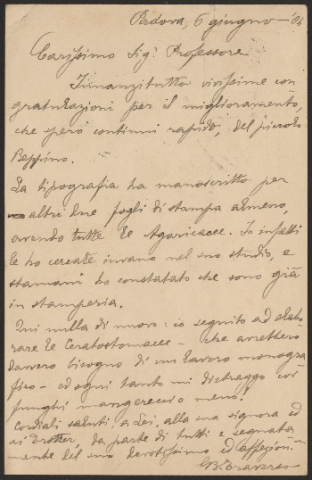 Padova, 6 giugno - '04
Carissimo Sig.r Professore
Innanzitutto vivissime con
gratulazioni per il miglioramento,
che però continui rapido, del piccolo
Beppino.
La tipografia ha manoscritto per
altri due fogli di stampa almeno,
avendo tutte le Agaricacee. Io infatti
le ho cercate invano nel suo studio, e
stamani ho constatato che sono già
in stamperia.
Qui nulla di nuovo: io seguito ad elabo
rare le Ceratostomacee - che avrebbero
davvero bisogno di un lavoro monogra
fico - ed ogni tanto mi distraggo coi
funghi mangerecci o meno!
Cordiali saluti a Lei, alla sua signora ed
ai Trotter, da parte di tutti e segnata
mente del suo devotissimo ed affezion.
G.B. Traverso